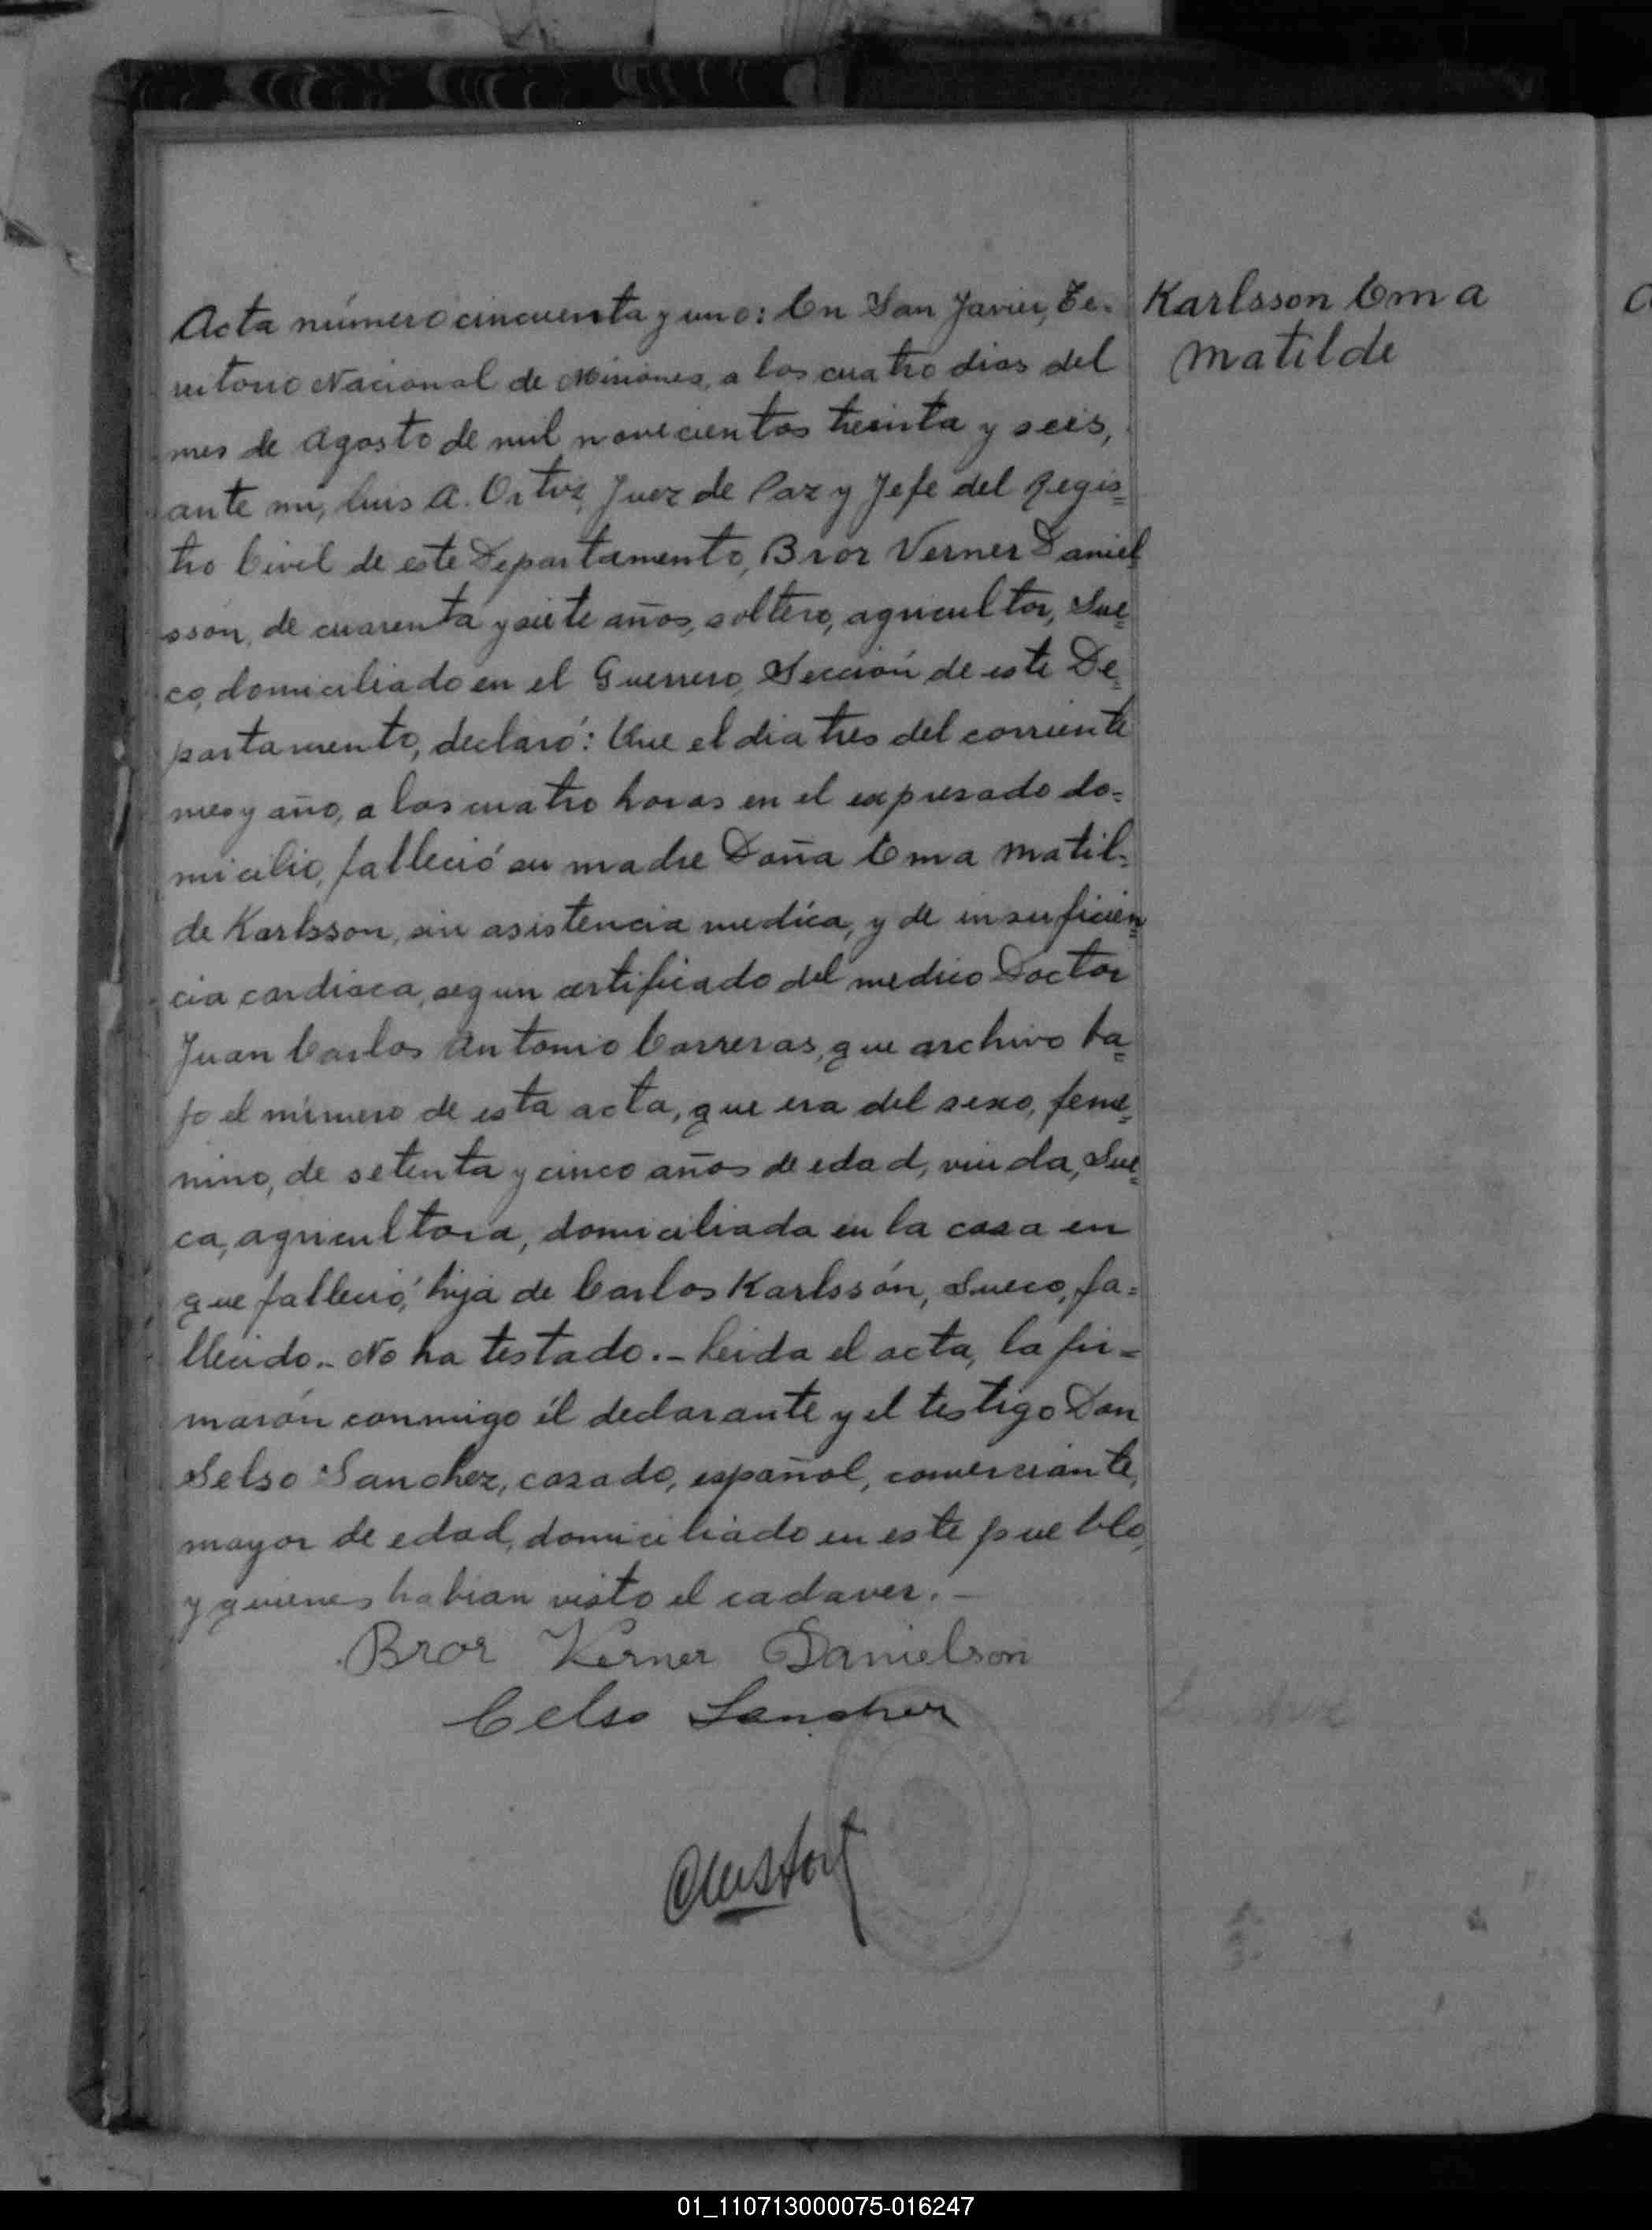 Acta número cincuenta y uno: En San Javier, Te-
rritorio Nacional de Misiones, a los cuatro dias del
mes de Agosto de mil novecientos treinta y seis,
ante mi, Luis A. Ortiz, Juez de Paz y Jefe del Regis=
tro Civil de este Departamento, Bror Verner Daniel
sson, de cuarenta y siete años, soltero, agricultor, Sue=
co, domiciliado en el Guerrero, Sección de este De=
partamento, declaró: Que el dia tres del corriente
mes y año, a las cuatro horas en el expresado do=
micilio, falleció su madre Doña Ema Matil=
de Karlsson, sin asistencia medica, y de insuficien=
cia cardiaca, segun certificado del medico Doctor
Juan Carlos Antonio Carreras, que archivo ba=
jo el número de esta acta, que era del sexo, feme=
nino, de setenta y cinco años de edad, viuda, Sue=
ca, agricultora, domiciliada en la casa en
que falleció, hija de Carlos Karlssón, Sueco, fa=
llecido.- No ha testado.- Leida el acta, la fir=
marón conmigo él declarante y el testigo Don
Selso Sanchez, casado, español, comerciante,
mayor de edad, domiciliado en este pueblo,
y quienes habian visto el cadaver.-
Bror Verner Danielson
Celso Sanchez
Karlsson Ema
Matilde
01_110713000075-016247